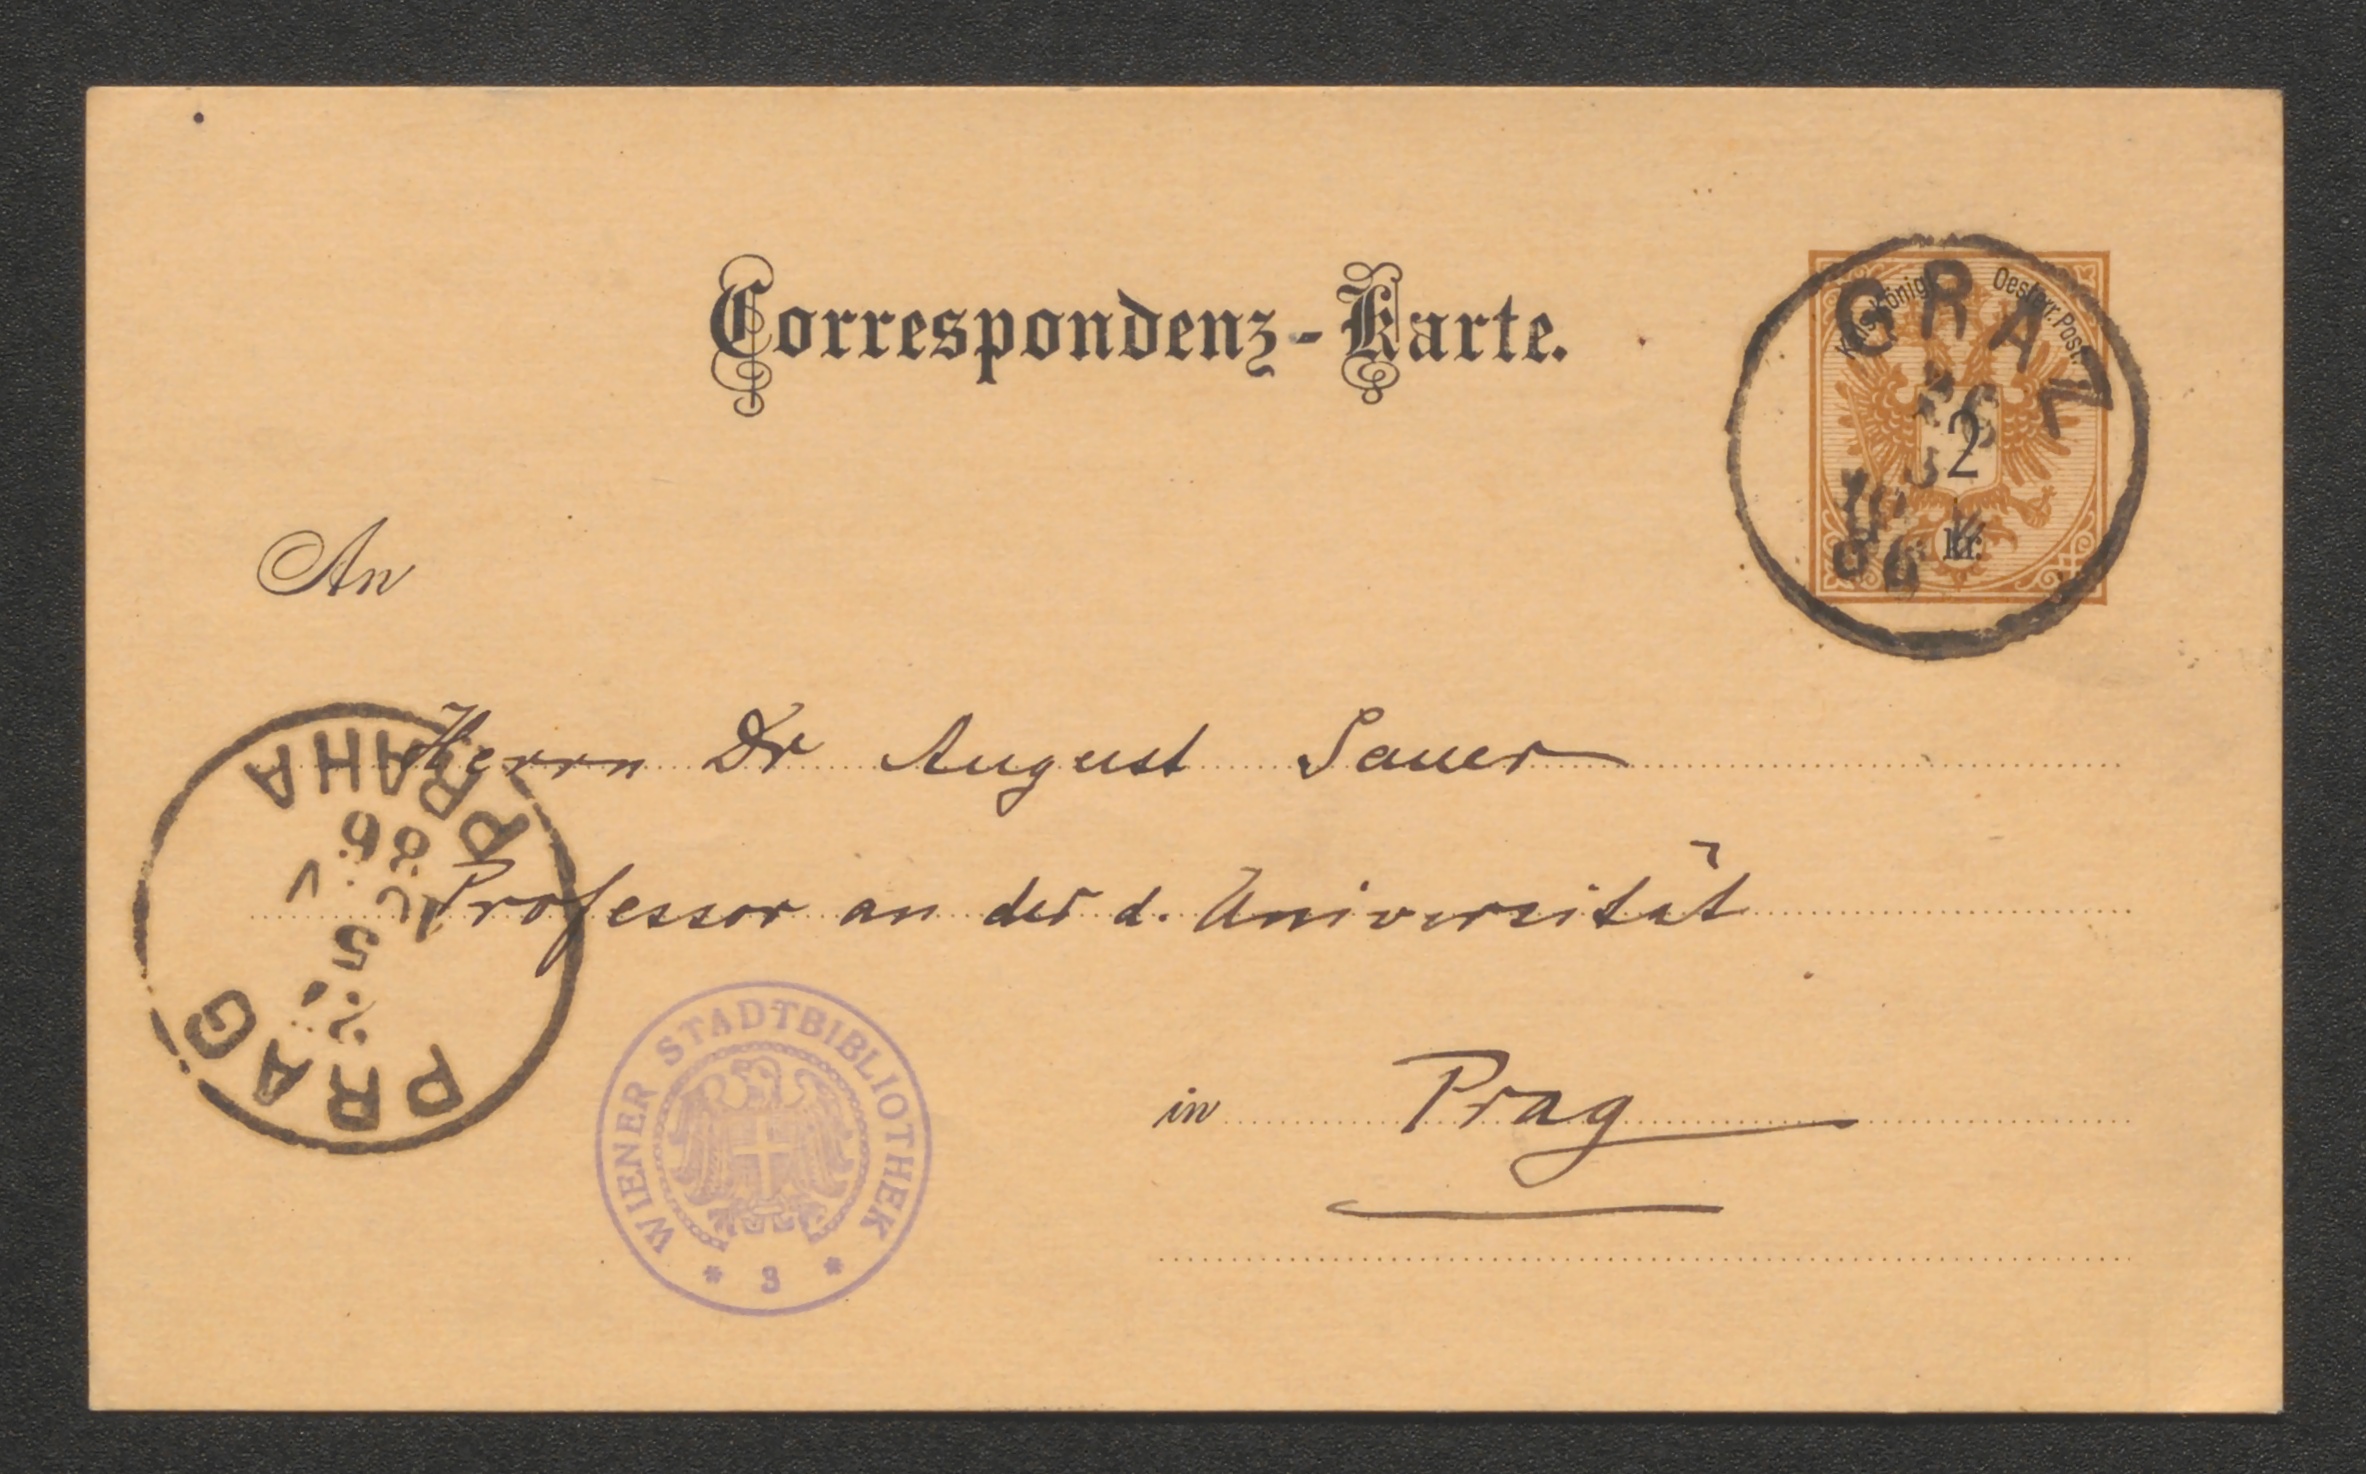 Correspondenz-Karte.
Kais. Königl. Oesterr. Post.
2
kr.
GRAZ
86
An
Herrn Dr August Sauer
Professor an der d. Universität
in Prag
PRAG
5
86
PRAHA
WIENER STADTBIBLIOTHEK
* 3 *